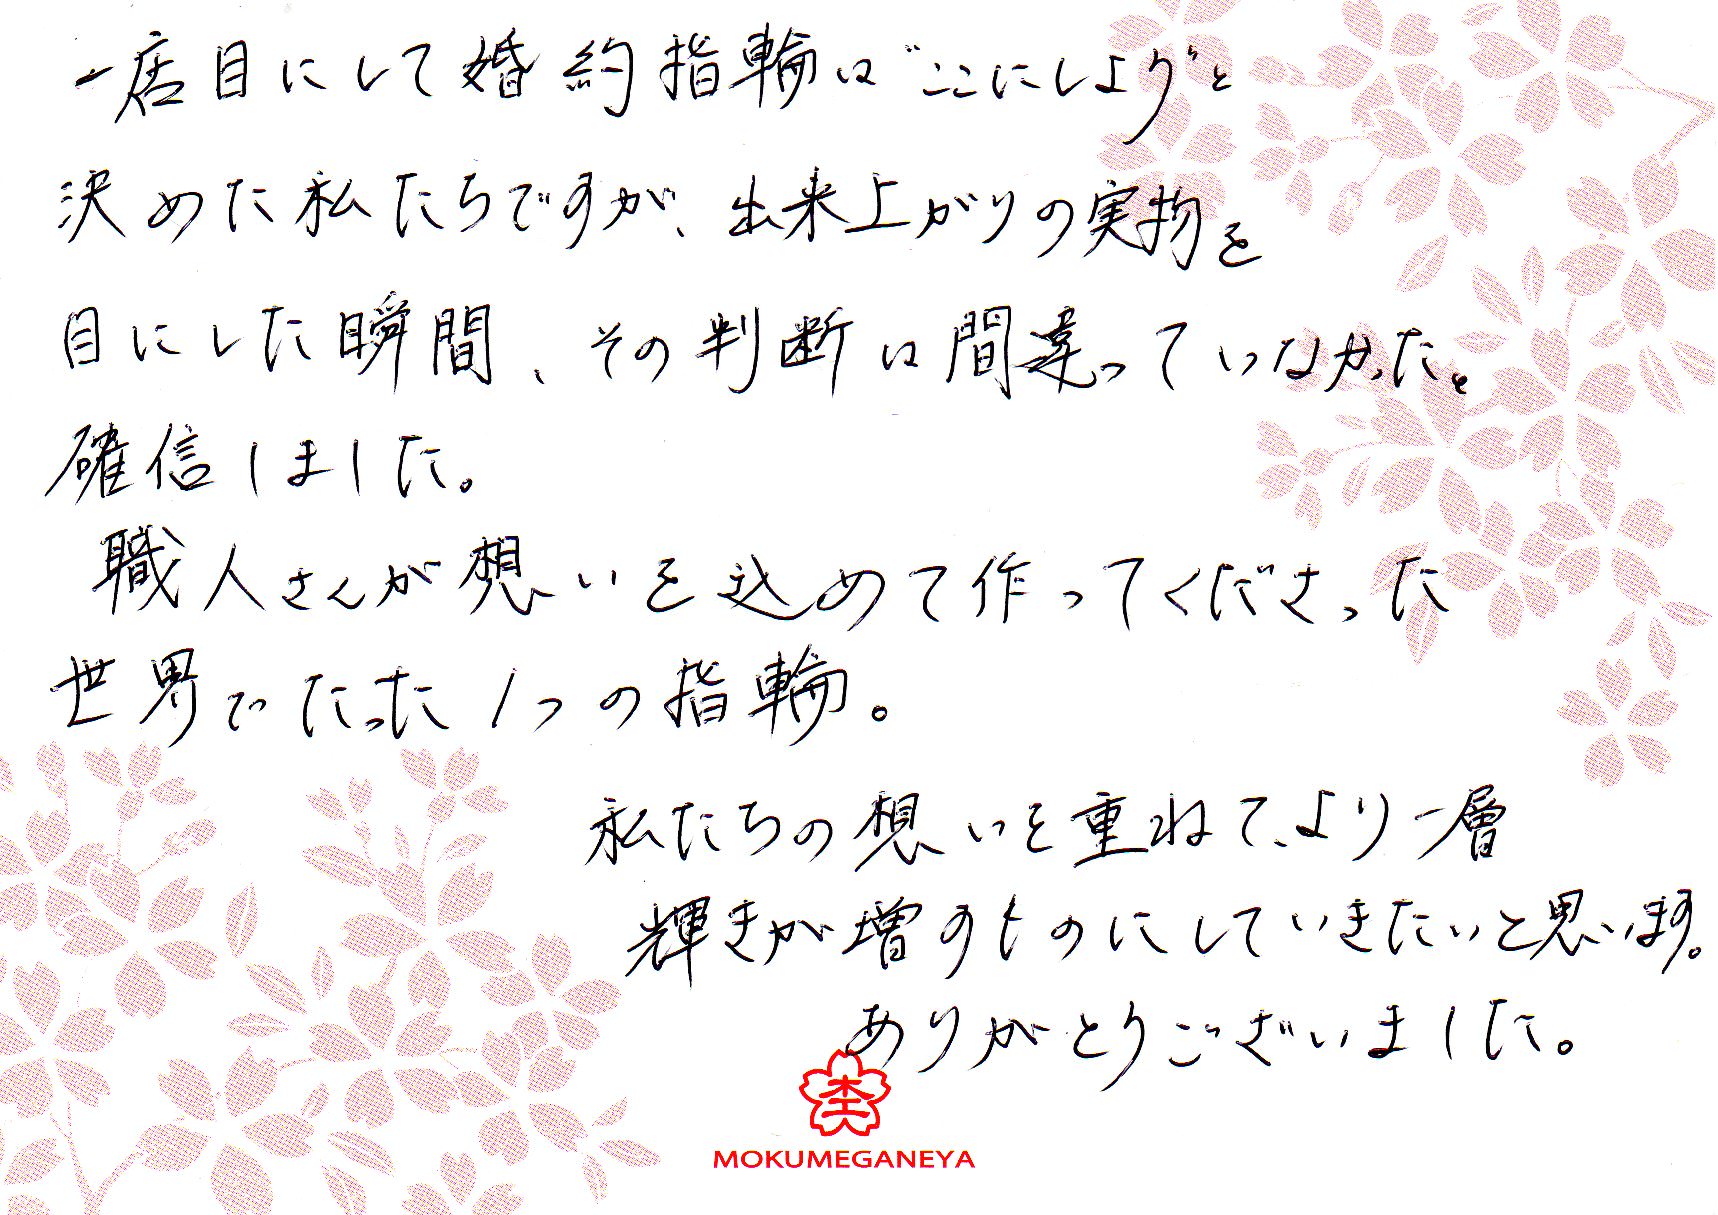 一店目にして婚約指輪は“ここにしよう”と
決めた私たちですが、出来上がりの実物を
目にした瞬間、その判断は間違っていなかった。と
確信しました。
職人さんが想いを込めて作ってくださった
世界でたった1つの指輪。
私たちの想いを重ねて、より一層
輝きが増すものにしていきたいと思います。
ありがとうございました。
杢
MOKUMEGANEYA